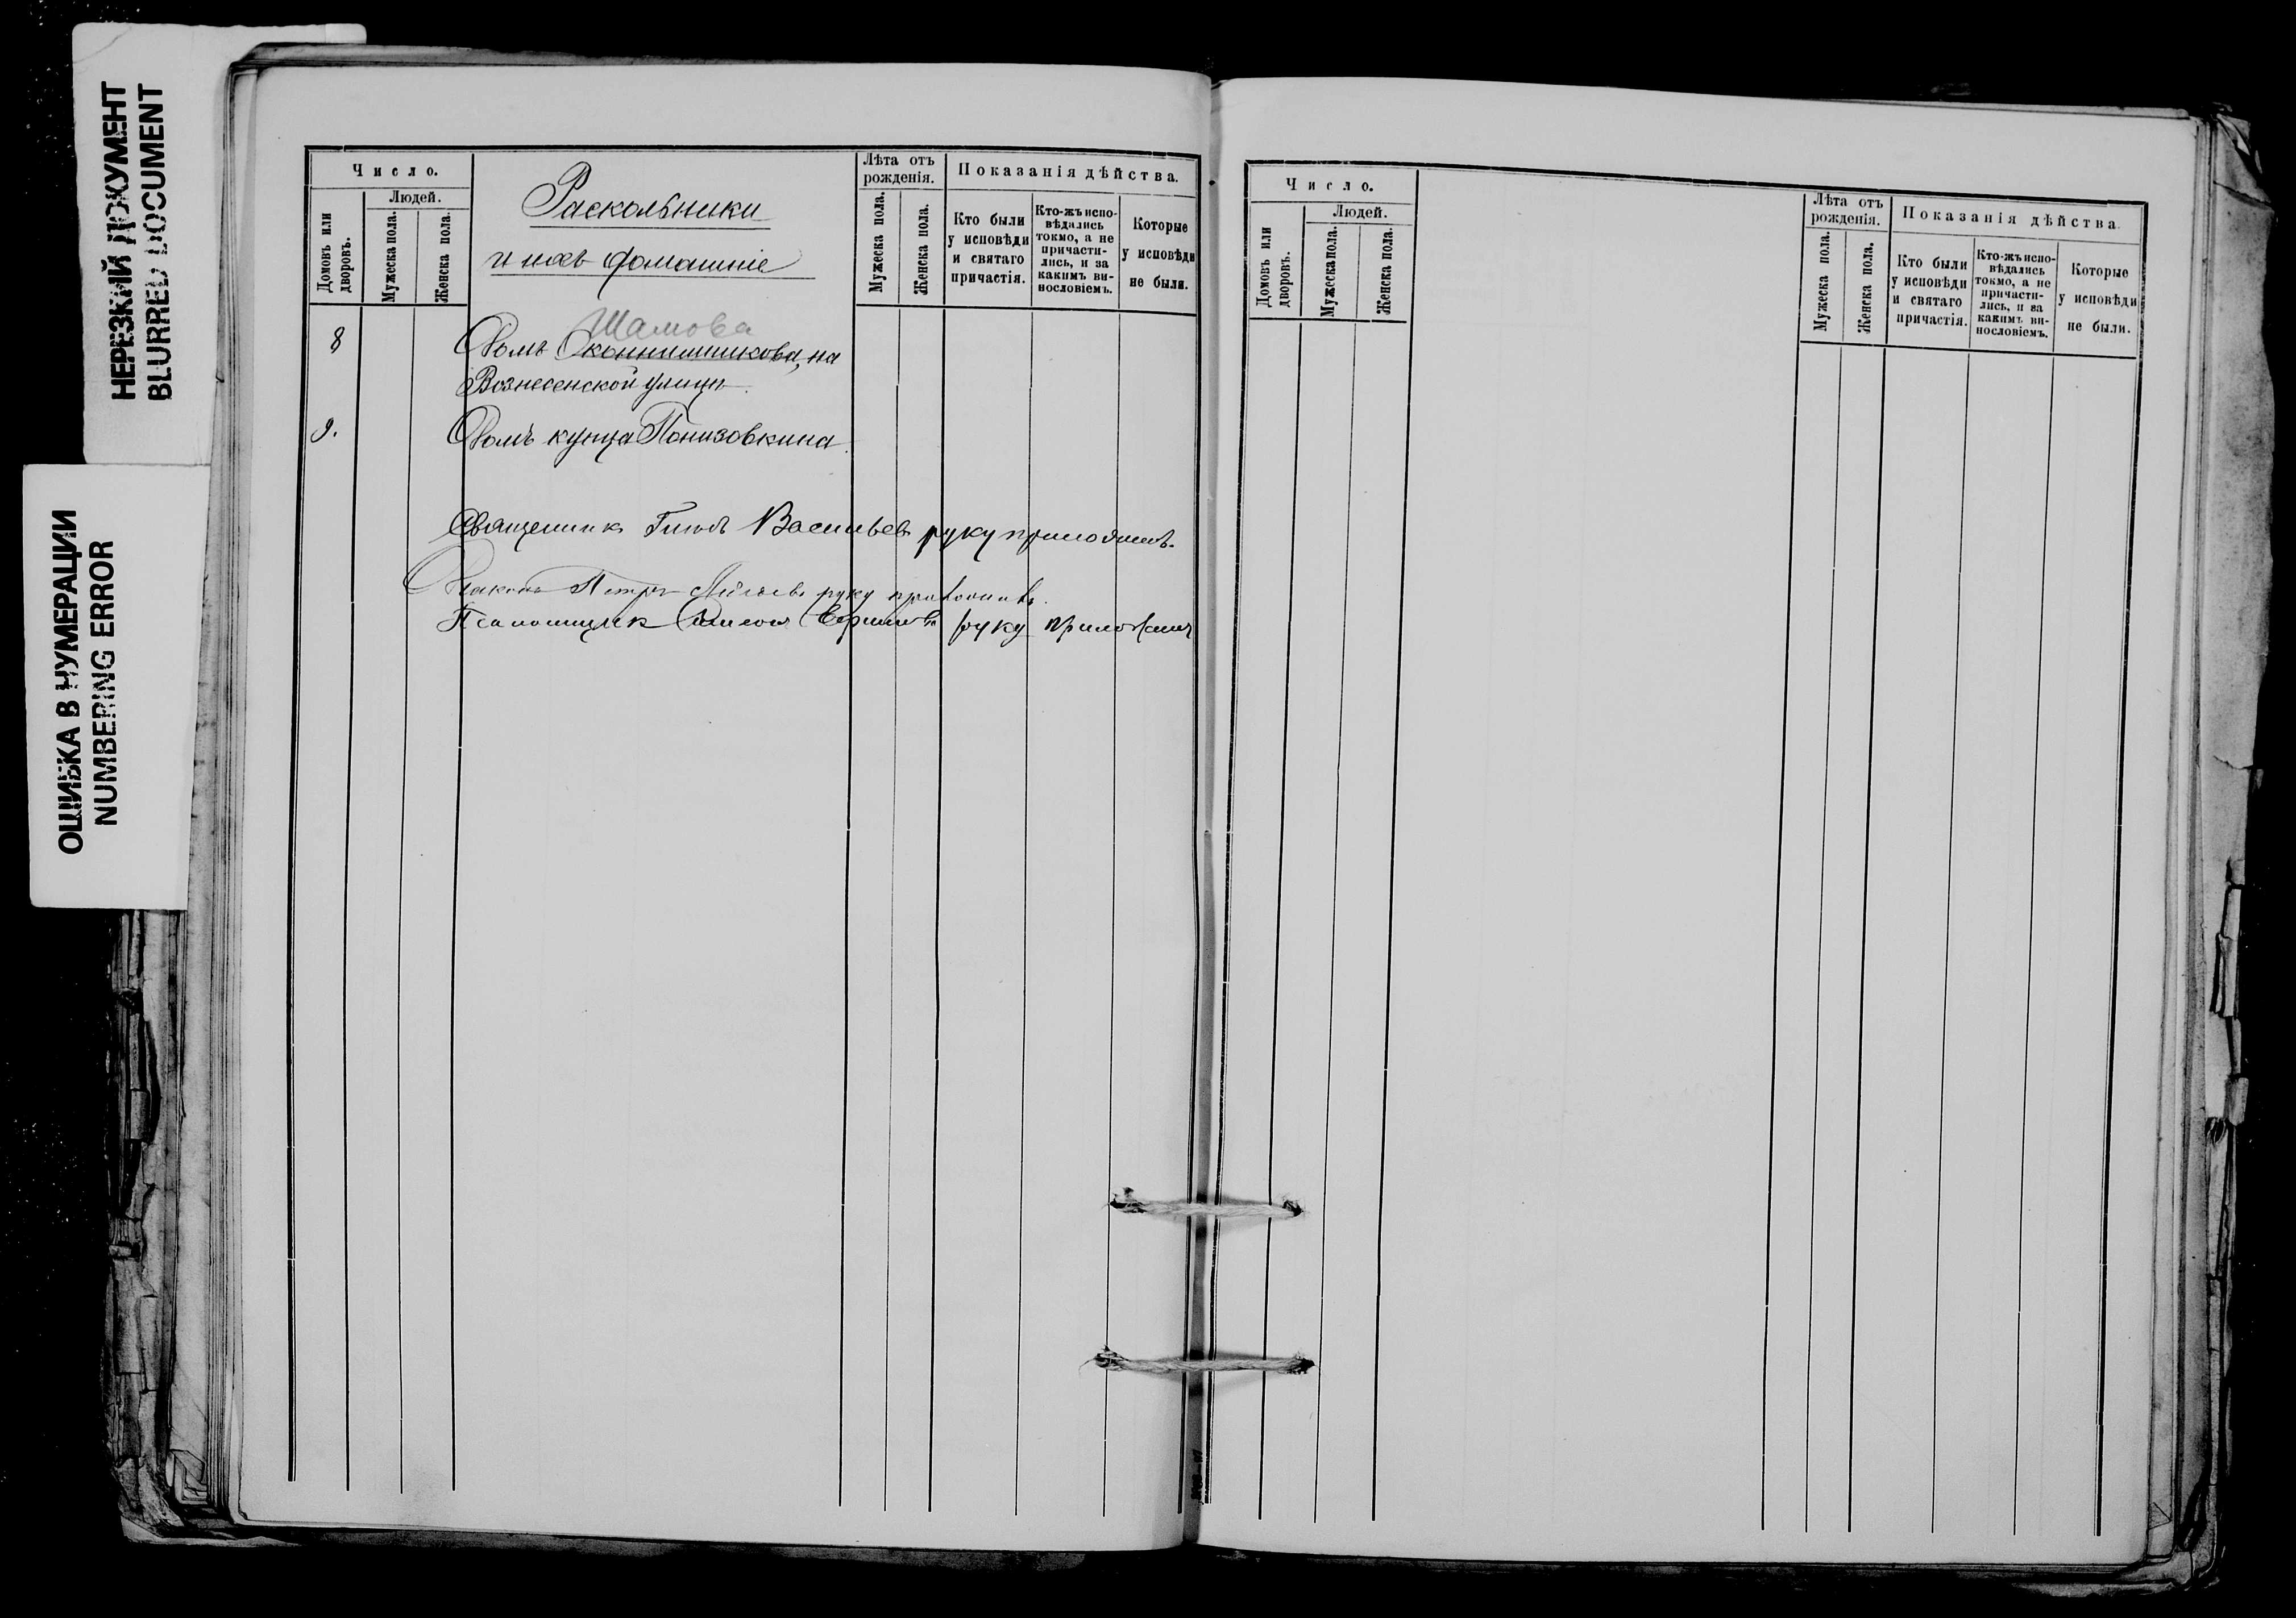 НЕРЕЗКИЙ ДОКУМЕНТ
BLURRED DOCUMENT
ОШИБКА В НУМЕРАЦИИ
NUMBERING ERROR
Число.
Людей.
Домовъ или дворовъ.
Мужеска пола.
Женска пола.
Раскольники
и ихъ домашніе
Лѣта отъ рожденія.
Мужеска пола.
Женска пола.
Показанія дѣйства.
Кто были
у исповѣди
и святаго
причастія.
Кто-жъ испо-
вѣдались
токмо, а не
причасти-
лись, и за
какимъ ви-
нословіемъ.
Которые
у исповѣди
не были.
Шамова
8 Домъ Оконнишникова, на
Вознесенской улицѣ.
9. Домъ купца Понизовкина.
Священникъ Васильевъ руку приложилъ.
Діаконъ Петръ руку приложилъ.
Псаломщикъ руку приложилъ
Число.
Людей.
Домовъ или дворовъ.
Мужеска пола.
Женска пола.
Лѣта отъ рожденія.
Мужеска пола.
Женска пола.
Показанія дѣйства.
Кто были
у исповѣди
и святаго
причастія.
Кто-жъ испо-
вѣдались
токмо, а не
причасти-
лись, и за
какимъ ви-
нословіемъ.
Которые
у исповѣди
не были.